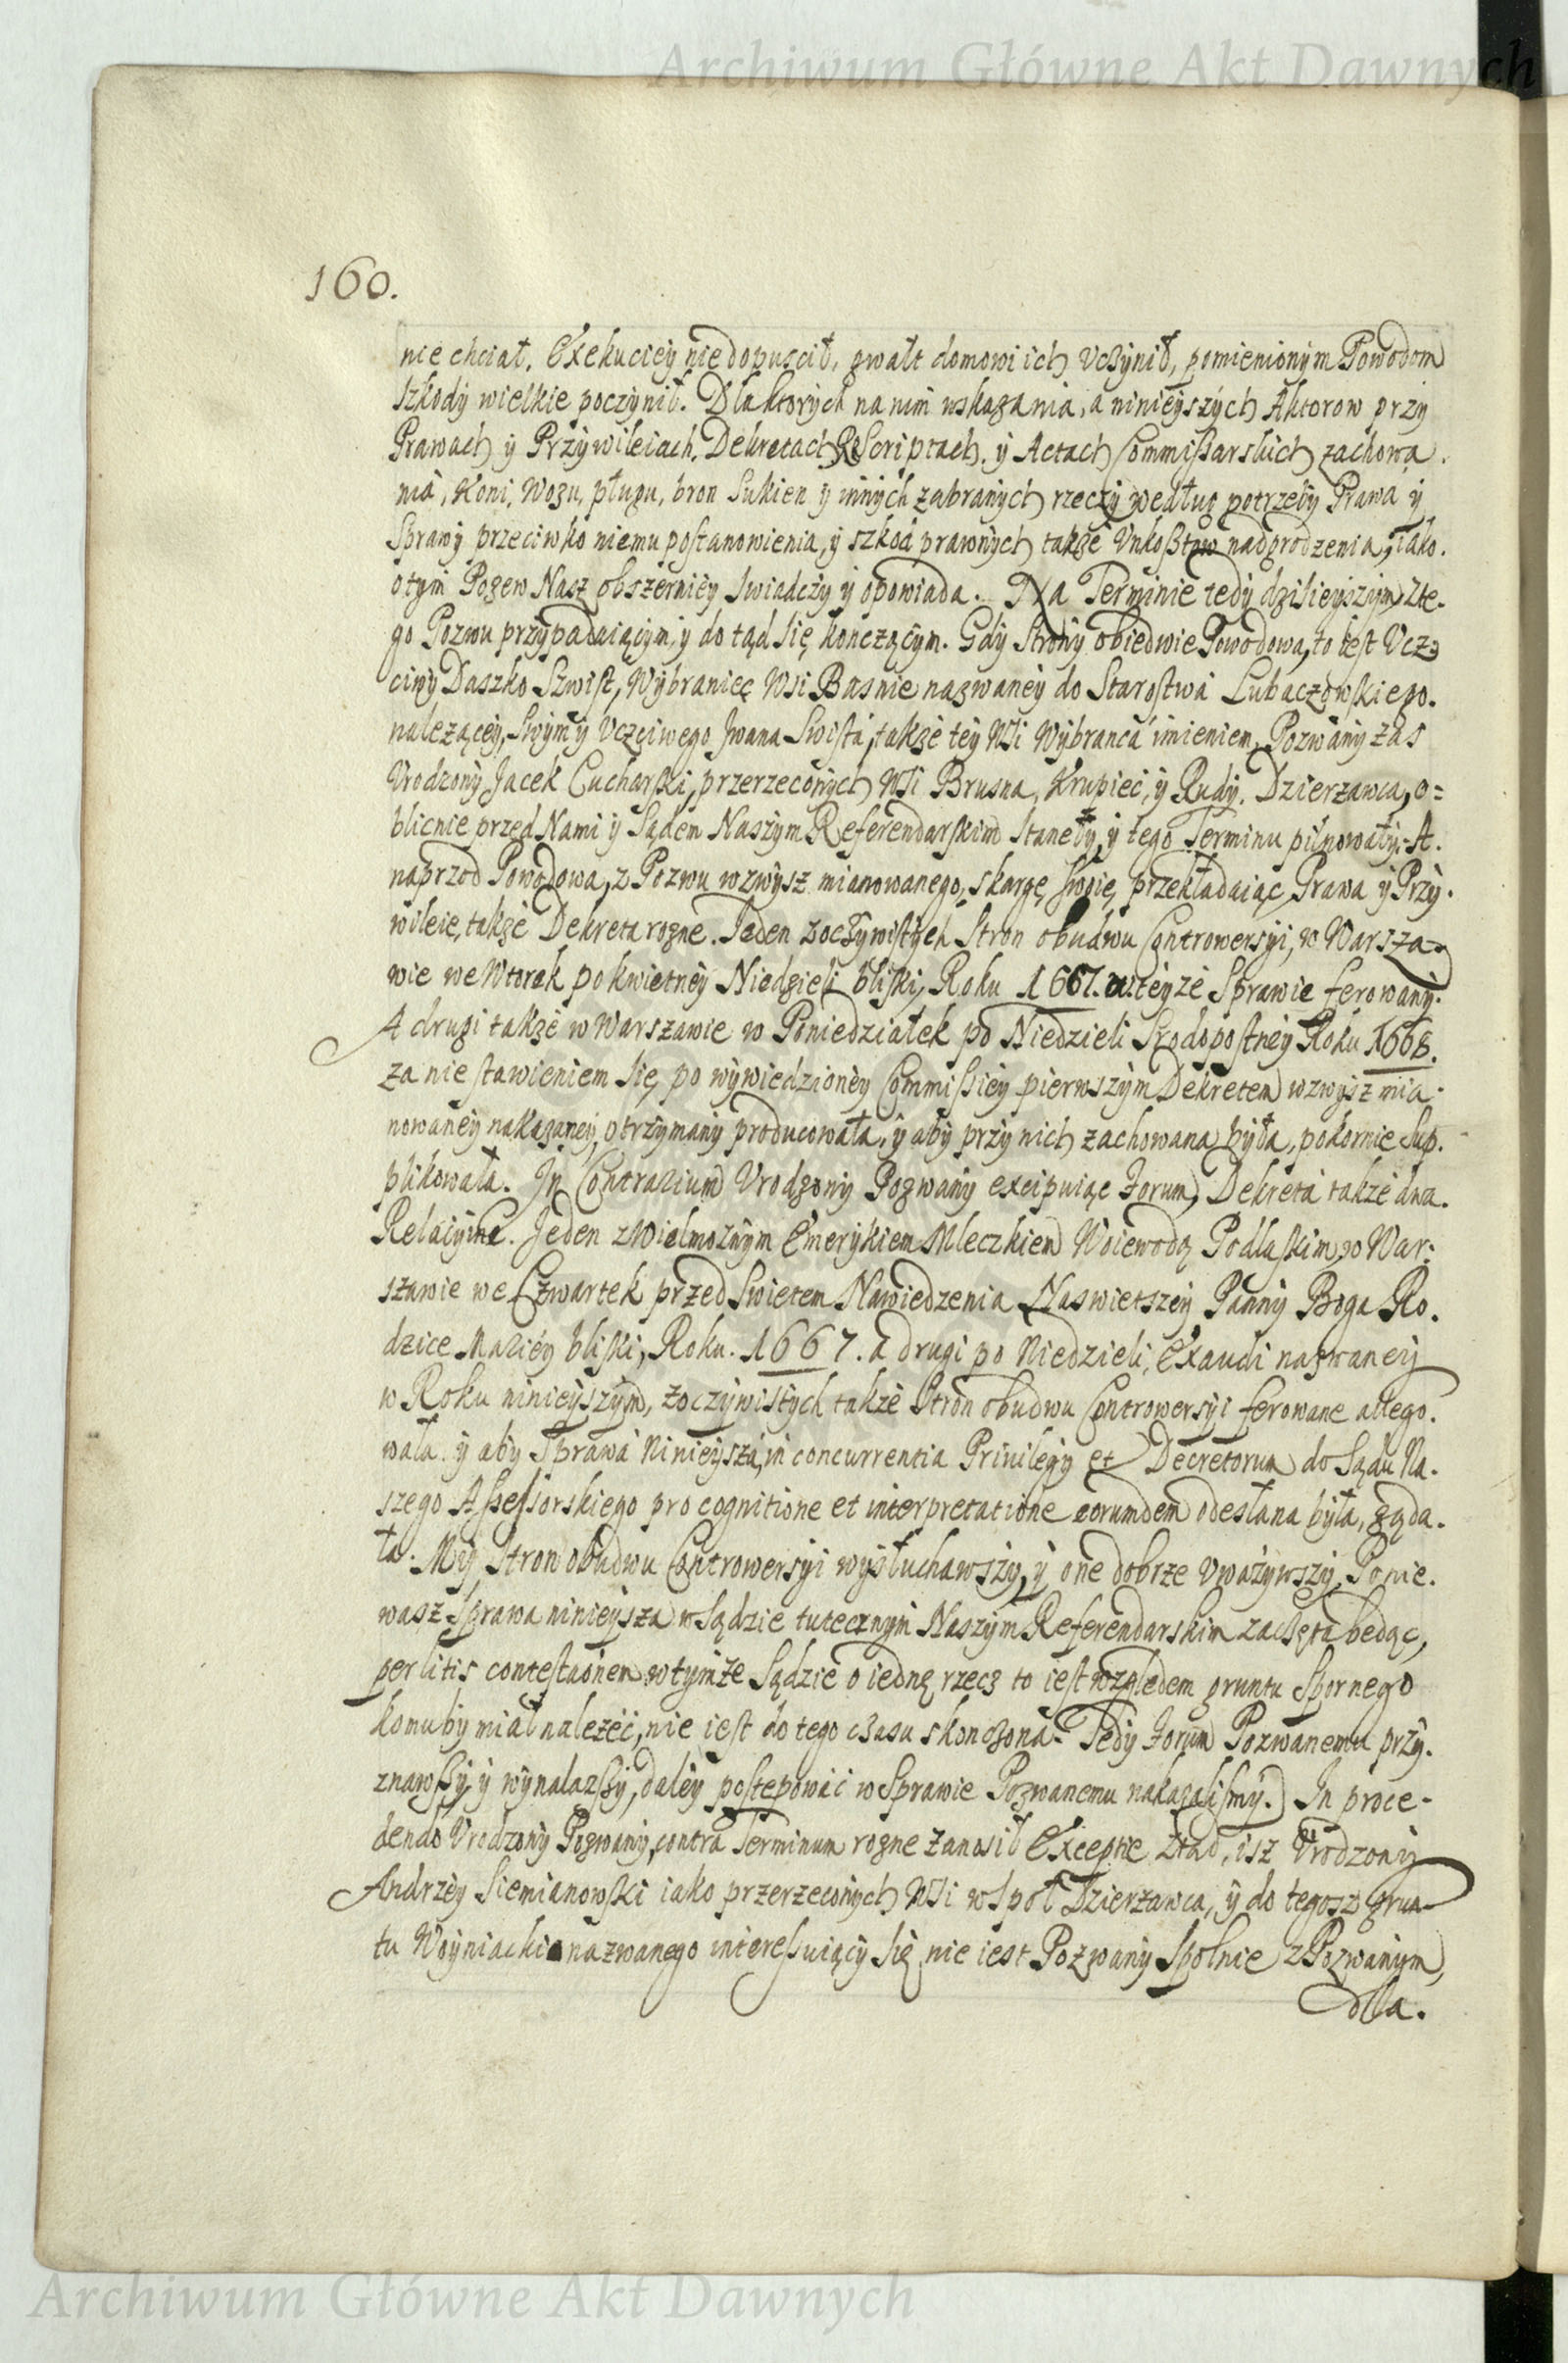 Archiwum Główne Akt Dawnych
160.
nie chciał, Exekuciey niedopuscił, gwałt domowi ich vczynił, pomienionym Powodom
szkody wielkie poczynił. Dla ktorych na nim wskazania, a ninieyszych Aktorow przy
Prawach y Przywileiach, Dekretach Rescriptach, y Actach Commissarskich zachowa.
nia, Koni, Wozu, pługu, bron Sukien y innych zabranych rzeczy według potrzeby Prawa y
Sprawy przeciwko niemu postanowienia, y szkod prawnych także Vnkosztow nadgrodzenia, iako.
o tym Pozew Nasz obszerniey swiadczy y opowiada. Na Terminie tedy dzisieyszym zte-
go Pozwu przypadaiącym, y do tąd się kończącym. Gdy Strony obiedwie Powodowa, to iest Vcz-
ciwy Daszko Szwist, Wybraniec Wsi Basnie nazwaney do Starostwa Lubaczowskiego.
nalezącey, swym y Vczciwego Iwana Swista, także tey Wsi Wybranca imieniem, Pozwany zas
Vrodzony Jacek Cucharski, przerzeconych Wsi Brusna, Krupiec, y Rudy. Dzierzawca, o=
blicnie przed Nami y Sądem Naszym Referendarskim staneły, y tego Terminu pilnowały. A.
naprzod Powodowa, z Pozwu wzwysz mianowanego, skargę swoię przekładaiąc, Prawa y Przy.
wileie, także Dekreta rozne. Jeden zoczywistych Stron obudwu Controwersyi, w Warsza-
wie we Wtorek po kwietney Niedzieli bliski, Roku 1667. w teyze Sprawie ferowany.
A drugi także w Warszawie w Poniedziałek po Niedzieli Srodopostney Roku 1668.
za nie stawieniem się, po wywiedzioney Commissiey pierwszym Dekretem wzwysz mia.
nowaney nakazaney, otrzymany producowała, y aby przy nich zachowana była, pokornie sup.
plikowała. In Contrarium Vrodzony Pozwany excipuiąc Forum, Dekreta także dwa.
Relacyine. Jeden z Wielmoznym Emerykiem Mleczkiem Woiewodą Podlaskim, w War:
szawie we Czwartek przed Swietem Nawiedzenia Naswietszey Panny Boga Ro.
dzice Mariey bliski, Roku. 1667. a drugi po Niedzieli, Exaudi nazwaney
w Roku ninieyszym, zoczywistych także Stron obudwu Controwersyi ferowane allego.
wała. y aby Sprawa Ninieysza, in concurrentia Privilegy et Decretorum do Sądu Na.
szego Assessorskiego pro cognitione et interpretatione eorumdem odesłana była, ząda.
ła. My Stron obudwu Controwersyi wysłuchawszy, y one dobrze vwazywszy, Ponie.
wasz Sprawa ninieysza w Sądzie tutecznym Naszym Referendarskim zaczęta bedąc,
per litis contestaonem w tymze Sądzie o iednę rzecz to iest względem gruntu spornego
komu by miał nalezeć, nie iest do tego czasu skonczona. Tedy Forum Pozwanemu przy.
znawszy, y wynalazszy, daley postepować w Sprawie Pozwanemu nakazalismy. In proce-
dendo Vrodzony Pozwany, contra Terminum rozne zanosił Exceptie ztad, isz Vrodzony
Andrzey Siemianowski iako przerzeconych Wsi wspoł Dzierzawca, y do tegosz grun-
tu Woyniacki nazwanego interessuiący się, nie iest Pozwany spolnie z Pozwanym,
dla.
Archiwum Główne Akt Dawnych